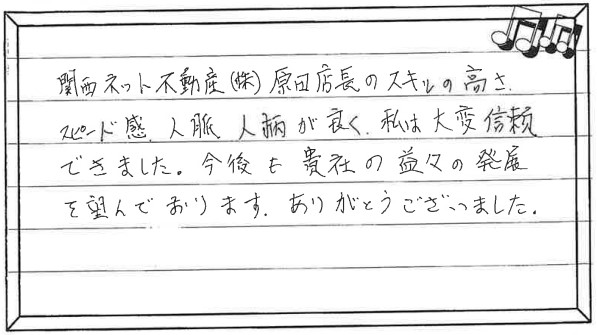 関西ネット不動産(株)原田店長のスキルの高さ、
スピード感、人脈、人柄が良く、私は大変信頼
できました。今後も貴社の益々の発展
を望んでおります。ありがとうございました。